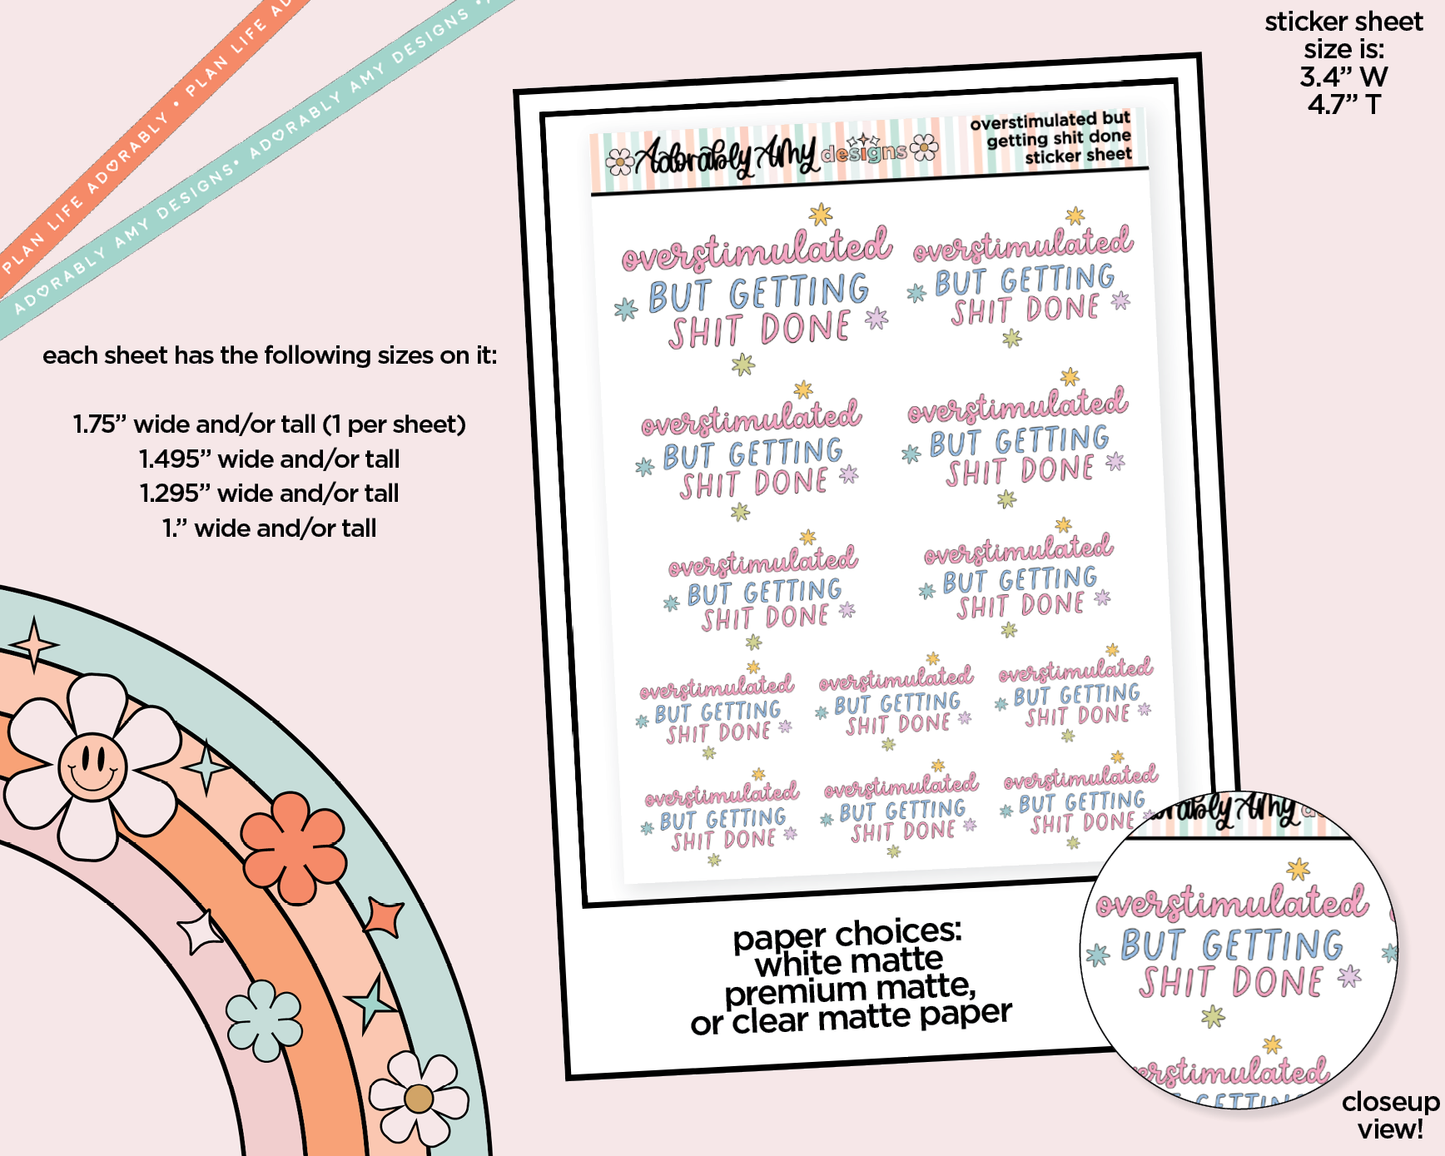 PLAN LIFE ADORABLY • PLAN LIFE AD
ADORABLY AMY DESIGNS* ADORABLY AMY DESIGNS *
sticker sheet
size is:
3.4” W
4.7” T
each sheet has the following sizes on it:
1.75” wide and/or tall (1 per sheet)
1.495” wide and/or tall
1.295” wide and/or tall
1.” wide and/or tall
Adorably Amy designs
overstimulated but
getting shit done
sticker sheet
overstimulated
BUT GETTING
SHIT DONE
overstimulated
BUT GETTING
SHIT DONE
overstimulated
BUT GETTING
SHIT DONE
overstimulated
BUT GETTING
SHIT DONE
overstimulated
BUT GETTING
SHIT DONE
overstimulated
BUT GETTING
SHIT DONE
overstimulated
BUT GETTING
SHIT DONE
overstimulated
BUT GETTING
SHIT DONE
overstimulated
BUT GETTING
SHIT DONE
overstimulated
BUT GETTING
SHIT DONE
overstimulated
BUT GETTING
SHIT DONE
overstimulated
BUT GETTING
SHIT DONE
paper choices:
white matte
premium matte,
or clear matte paper
orably Amy de
overstimulated
BUT GETTING
SHIT DONE
erstimulated
GETTING
closeup
view!